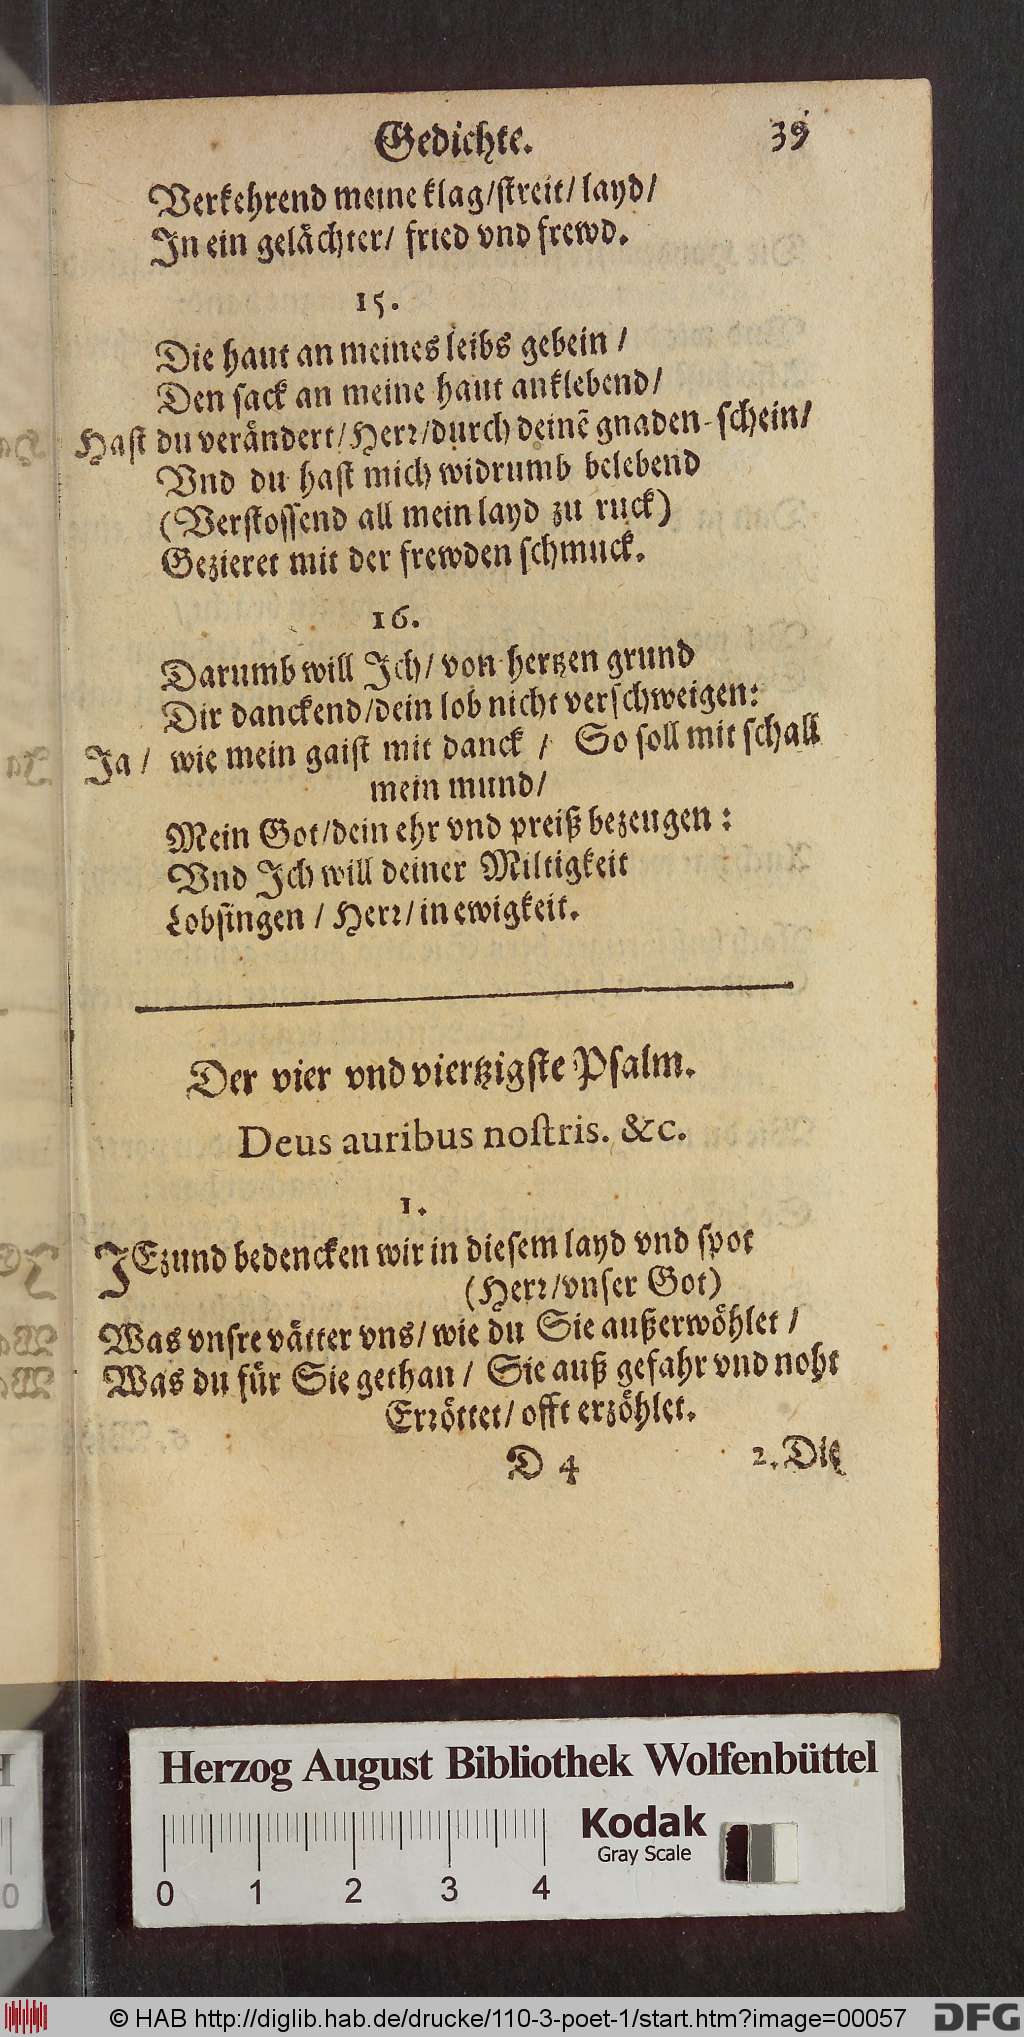 Gedichte. 39
Verkehrend meine klag/streit/ layd/
In ein gelächter/ fried vnd frewd.
15.
Die haut an meines leibs gebein /
Den sack an meine haut anklebend/
Hast du verändert/Herr/durch deinẽ gnaden-schein/
Vnd du hast mich widrumb belebend
(Verstossend all mein layd zu ruck)
Gezieret mit der frewden schmuck.
16.
Darumb will Ich/ von hertzen grund
Dir danckend/dein lob nicht verschweigen:
Ja / wie mein gaist mit danck / So soll mit schall
mein mund/
Mein Got/dein ehr vnd preiß bezeugen :
Vnd Ich will deiner Miltigkeit
Lobsingen / Herr/ in ewigkeit.
Der vier vnd viertzigste Psalm.
Deus auribus nostris. &c.
1.
JEzund bedencken wir in diesem layd vnd spot
(Herr/vnser Got)
Was vnsre vätter vns/ wie du Sie außerwöhlet /
Was du für Sie gethan / Sie auß gefahr vnd noht
Erröttet/ offt erzöhlet.
D 4 2. Die
Herzog August Bibliothek Wolfenbüttel
Kodak
Gray Scale
0 1 2 3 4
© HAB http://diglib.hab.de/drucke/110-3-poet-1/start.htm?image=00057 DFG